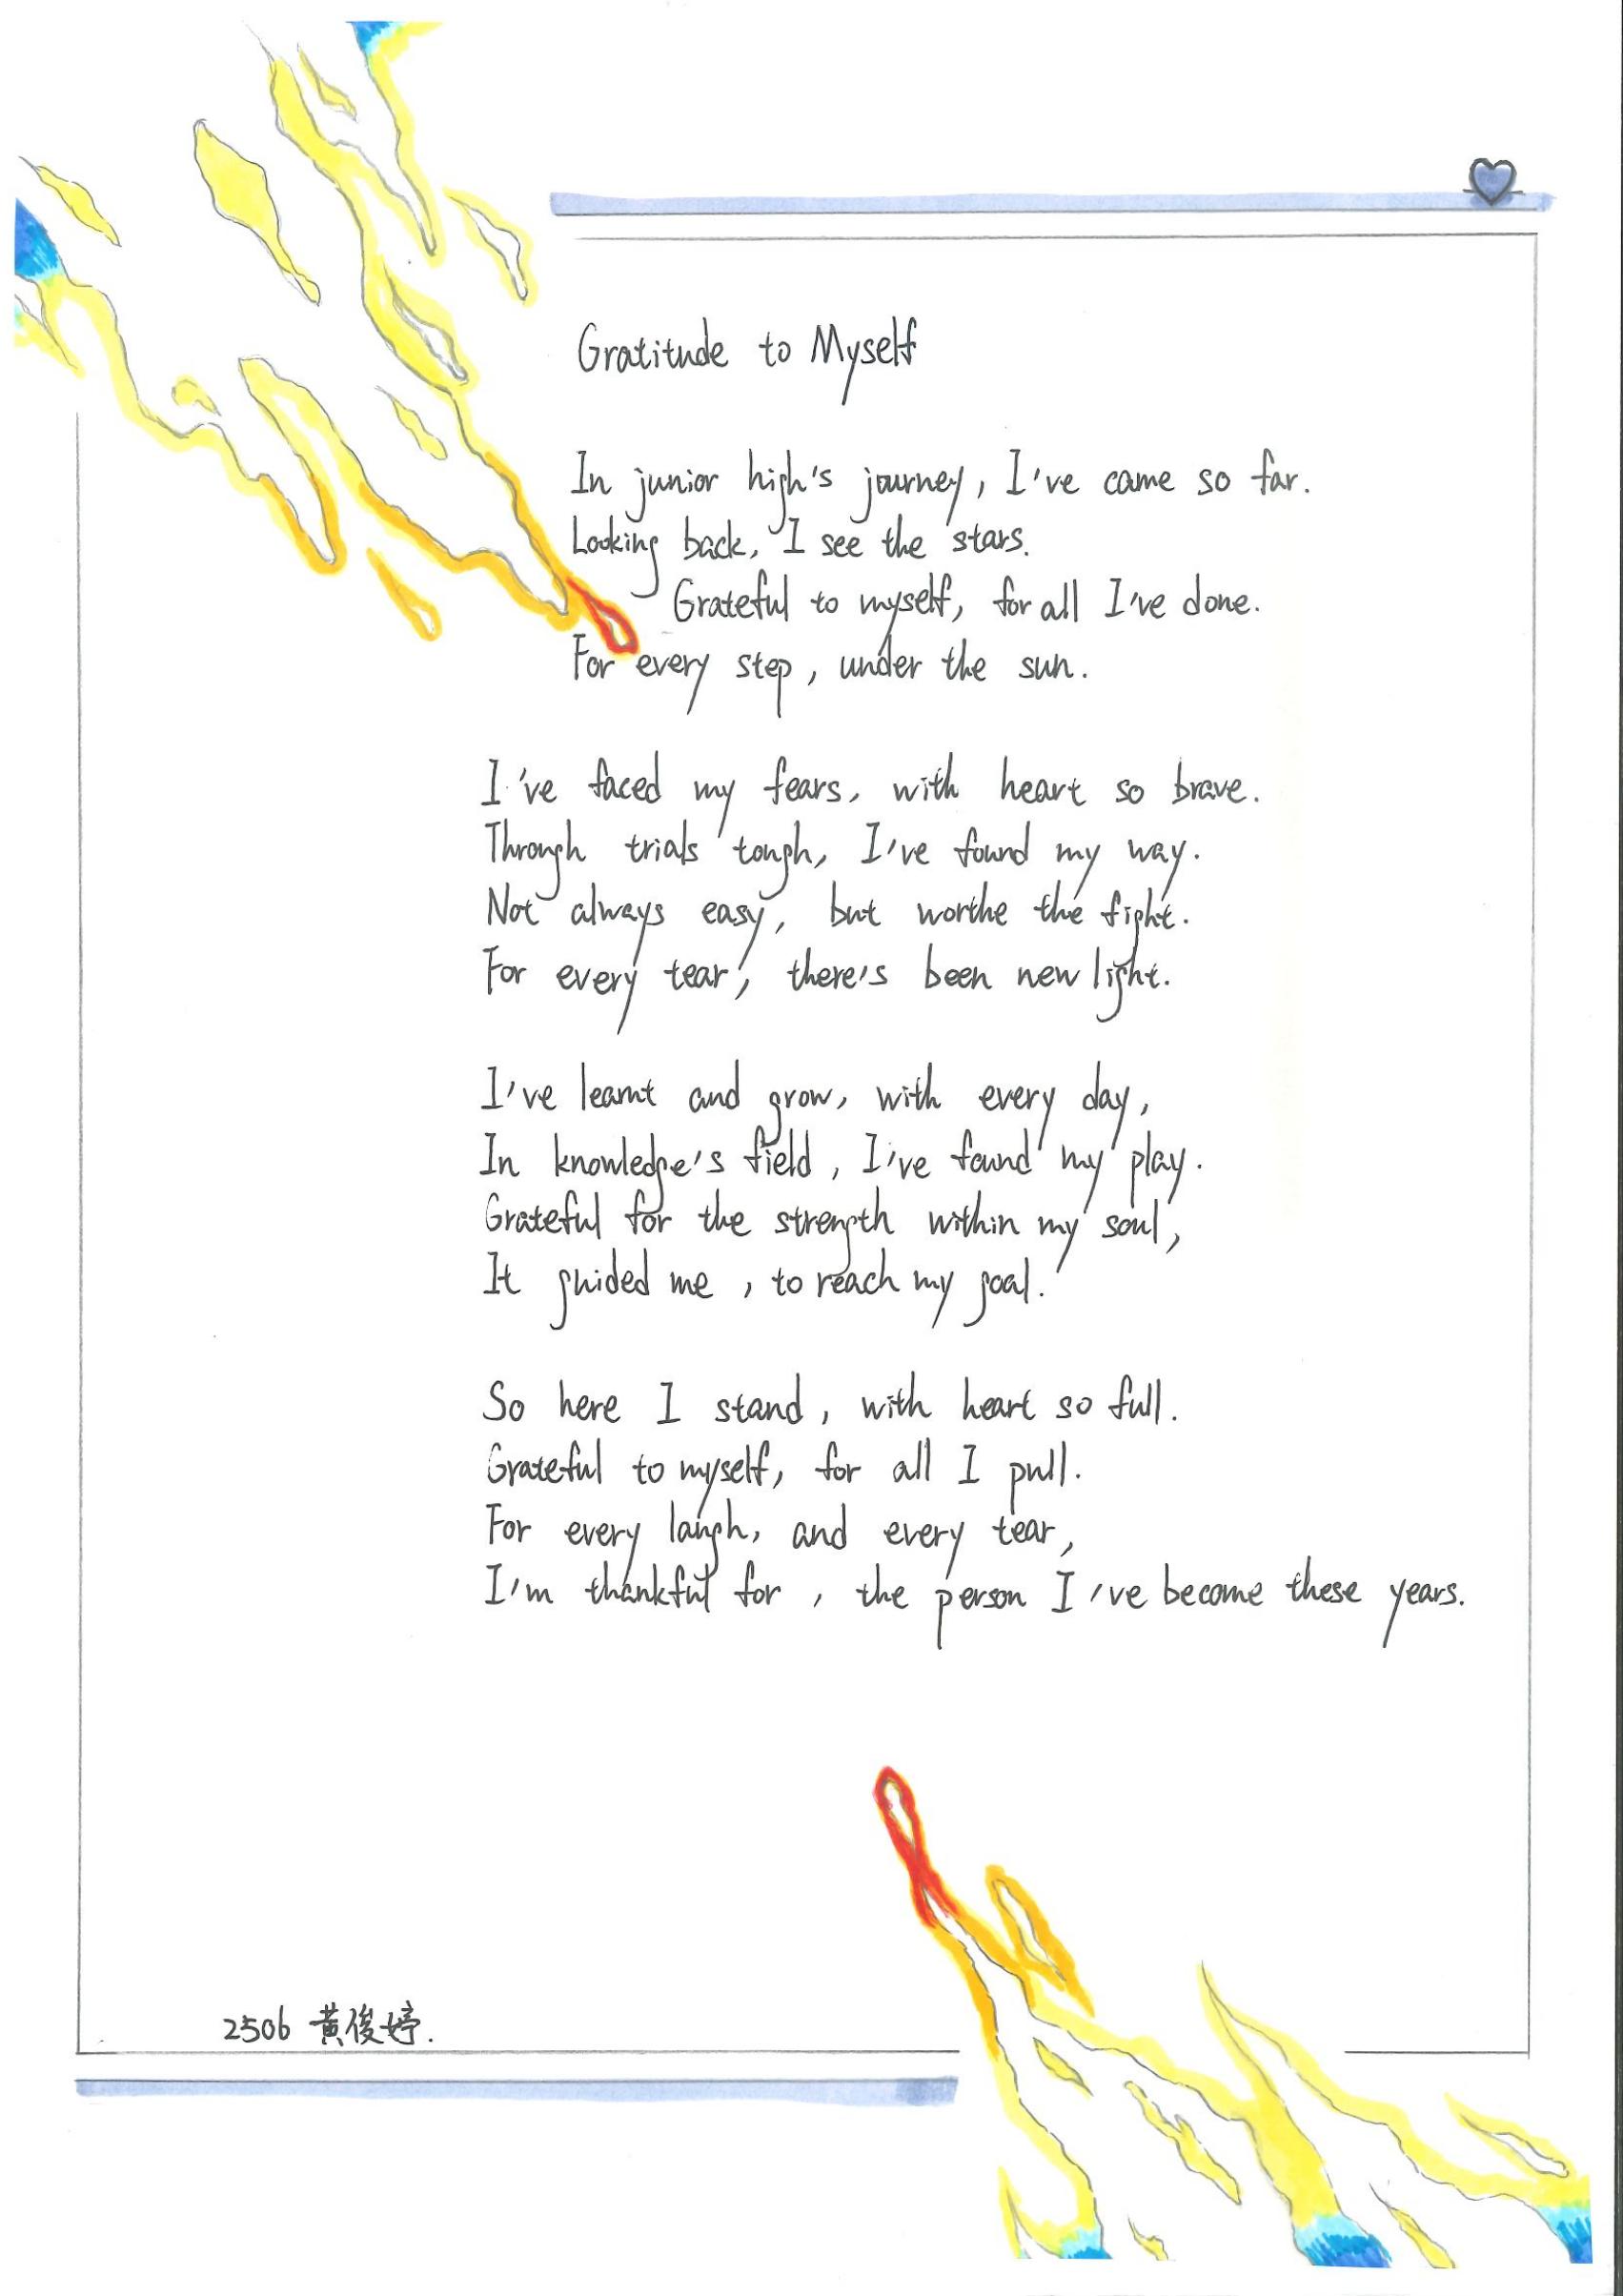 Gratitude to Myself
In junior high's journey, I've came so far.
Looking back, I see the stars.
Grateful to myself, for all I've done.
For every step, under the sun.
I've faced my fears, with heart so brave.
Through trials tough, I've found my way.
Not always easy, but worthe the fight.
For every tear, there's been new light.
I've learnt and grow, with every day,
In knowledge's field, I've found my play.
Grateful for the strength within my soul,
It guided me, to reach my goal.
So here I stand, with heart so full.
Grateful to myself, for all I pull.
For every laugh, and every tear,
I'm thankful for, the person I've become these years.
2506 黄俊婷.